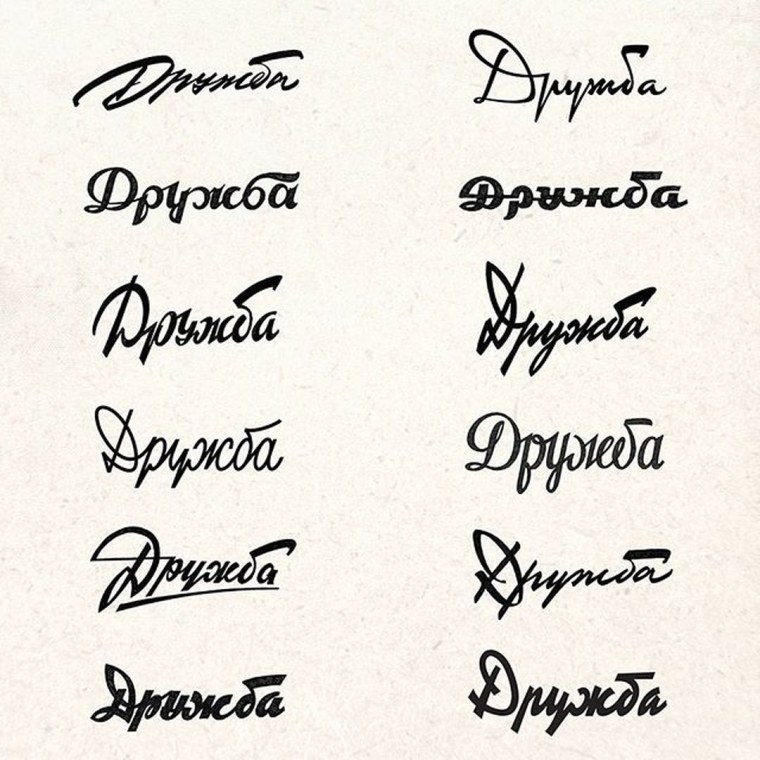 Дружба Дружба
Дружба Дружба
Дружба Дружба
Дружба Дружба
Дружба Дружба
Дружба Дружба